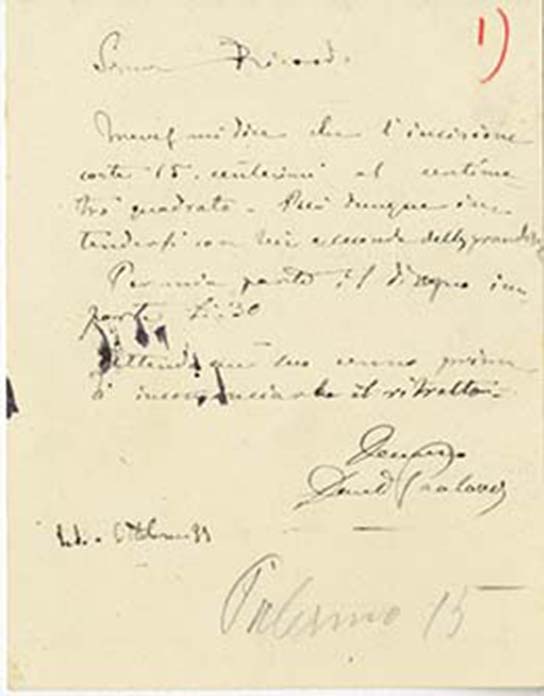 1)
Ricordi
mi dice che l'incisione
costa 15. centesimi al centime
tro quadrato - Può dunque in-
tendersi con lui a seconda della grandezza
Per mia parte il disegno im
porta L. 30
Attendo un suo cenno prima
d' incominciare il ritratto.-
Devmo
David
Ottobre
Palermo 15